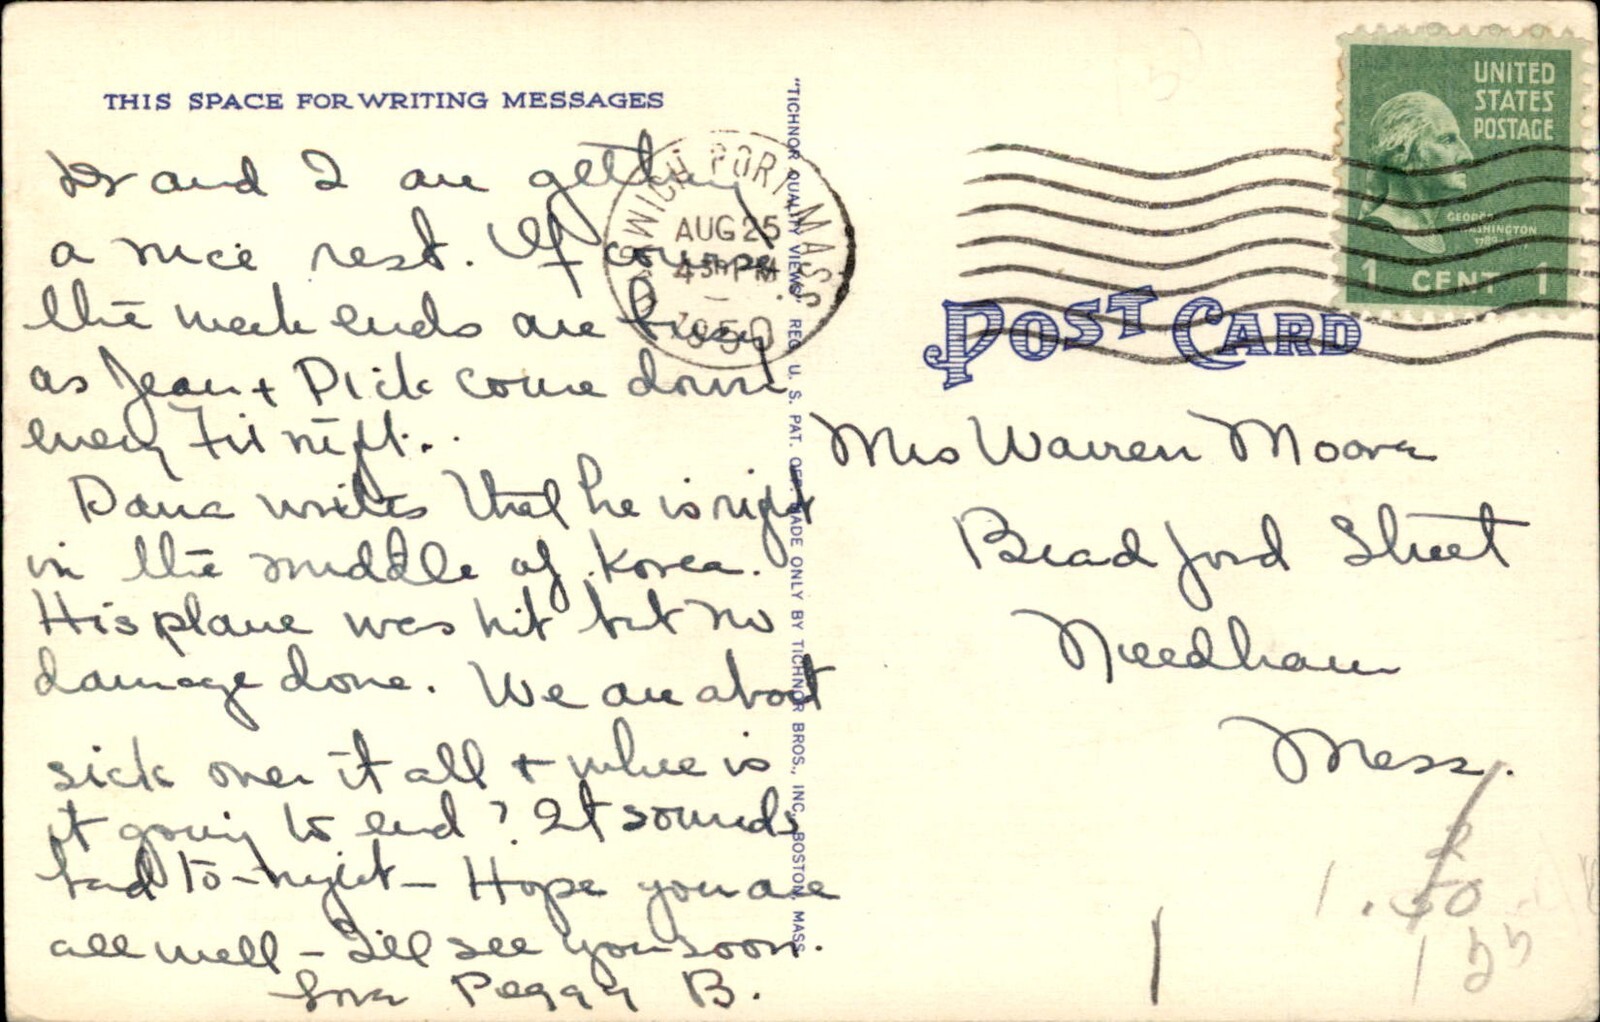 THIS SPACE FOR WRITING MESSAGES
Dr and I are getting
a nice rest. Of course
the week ends are busy
as Jean + Dick come down
every Fri night.
Dana writes that he is right
in the middle of Korea.
His plane was hit but no
damage done. We are about
sick over it all + where is
it going to end? It sounds
bad to-night - Hope you are
all well - I'll see you soon.
Love Peggy B.
"TICHNOR QUALITY VIEWS" REG. U. S. PAT. OFF. MADE ONLY BY TICHNOR BROS., INC., BOSTON, MASS.
HARWICH PORT MASS
AUG 25
4 PM
1950
UNITED
STATES
POSTAGE
GEORGE
WASHINGTON
1 CENT 1
POST CARD
Mrs Warren Moore
Bradford Street
Needham
Mass.
.50